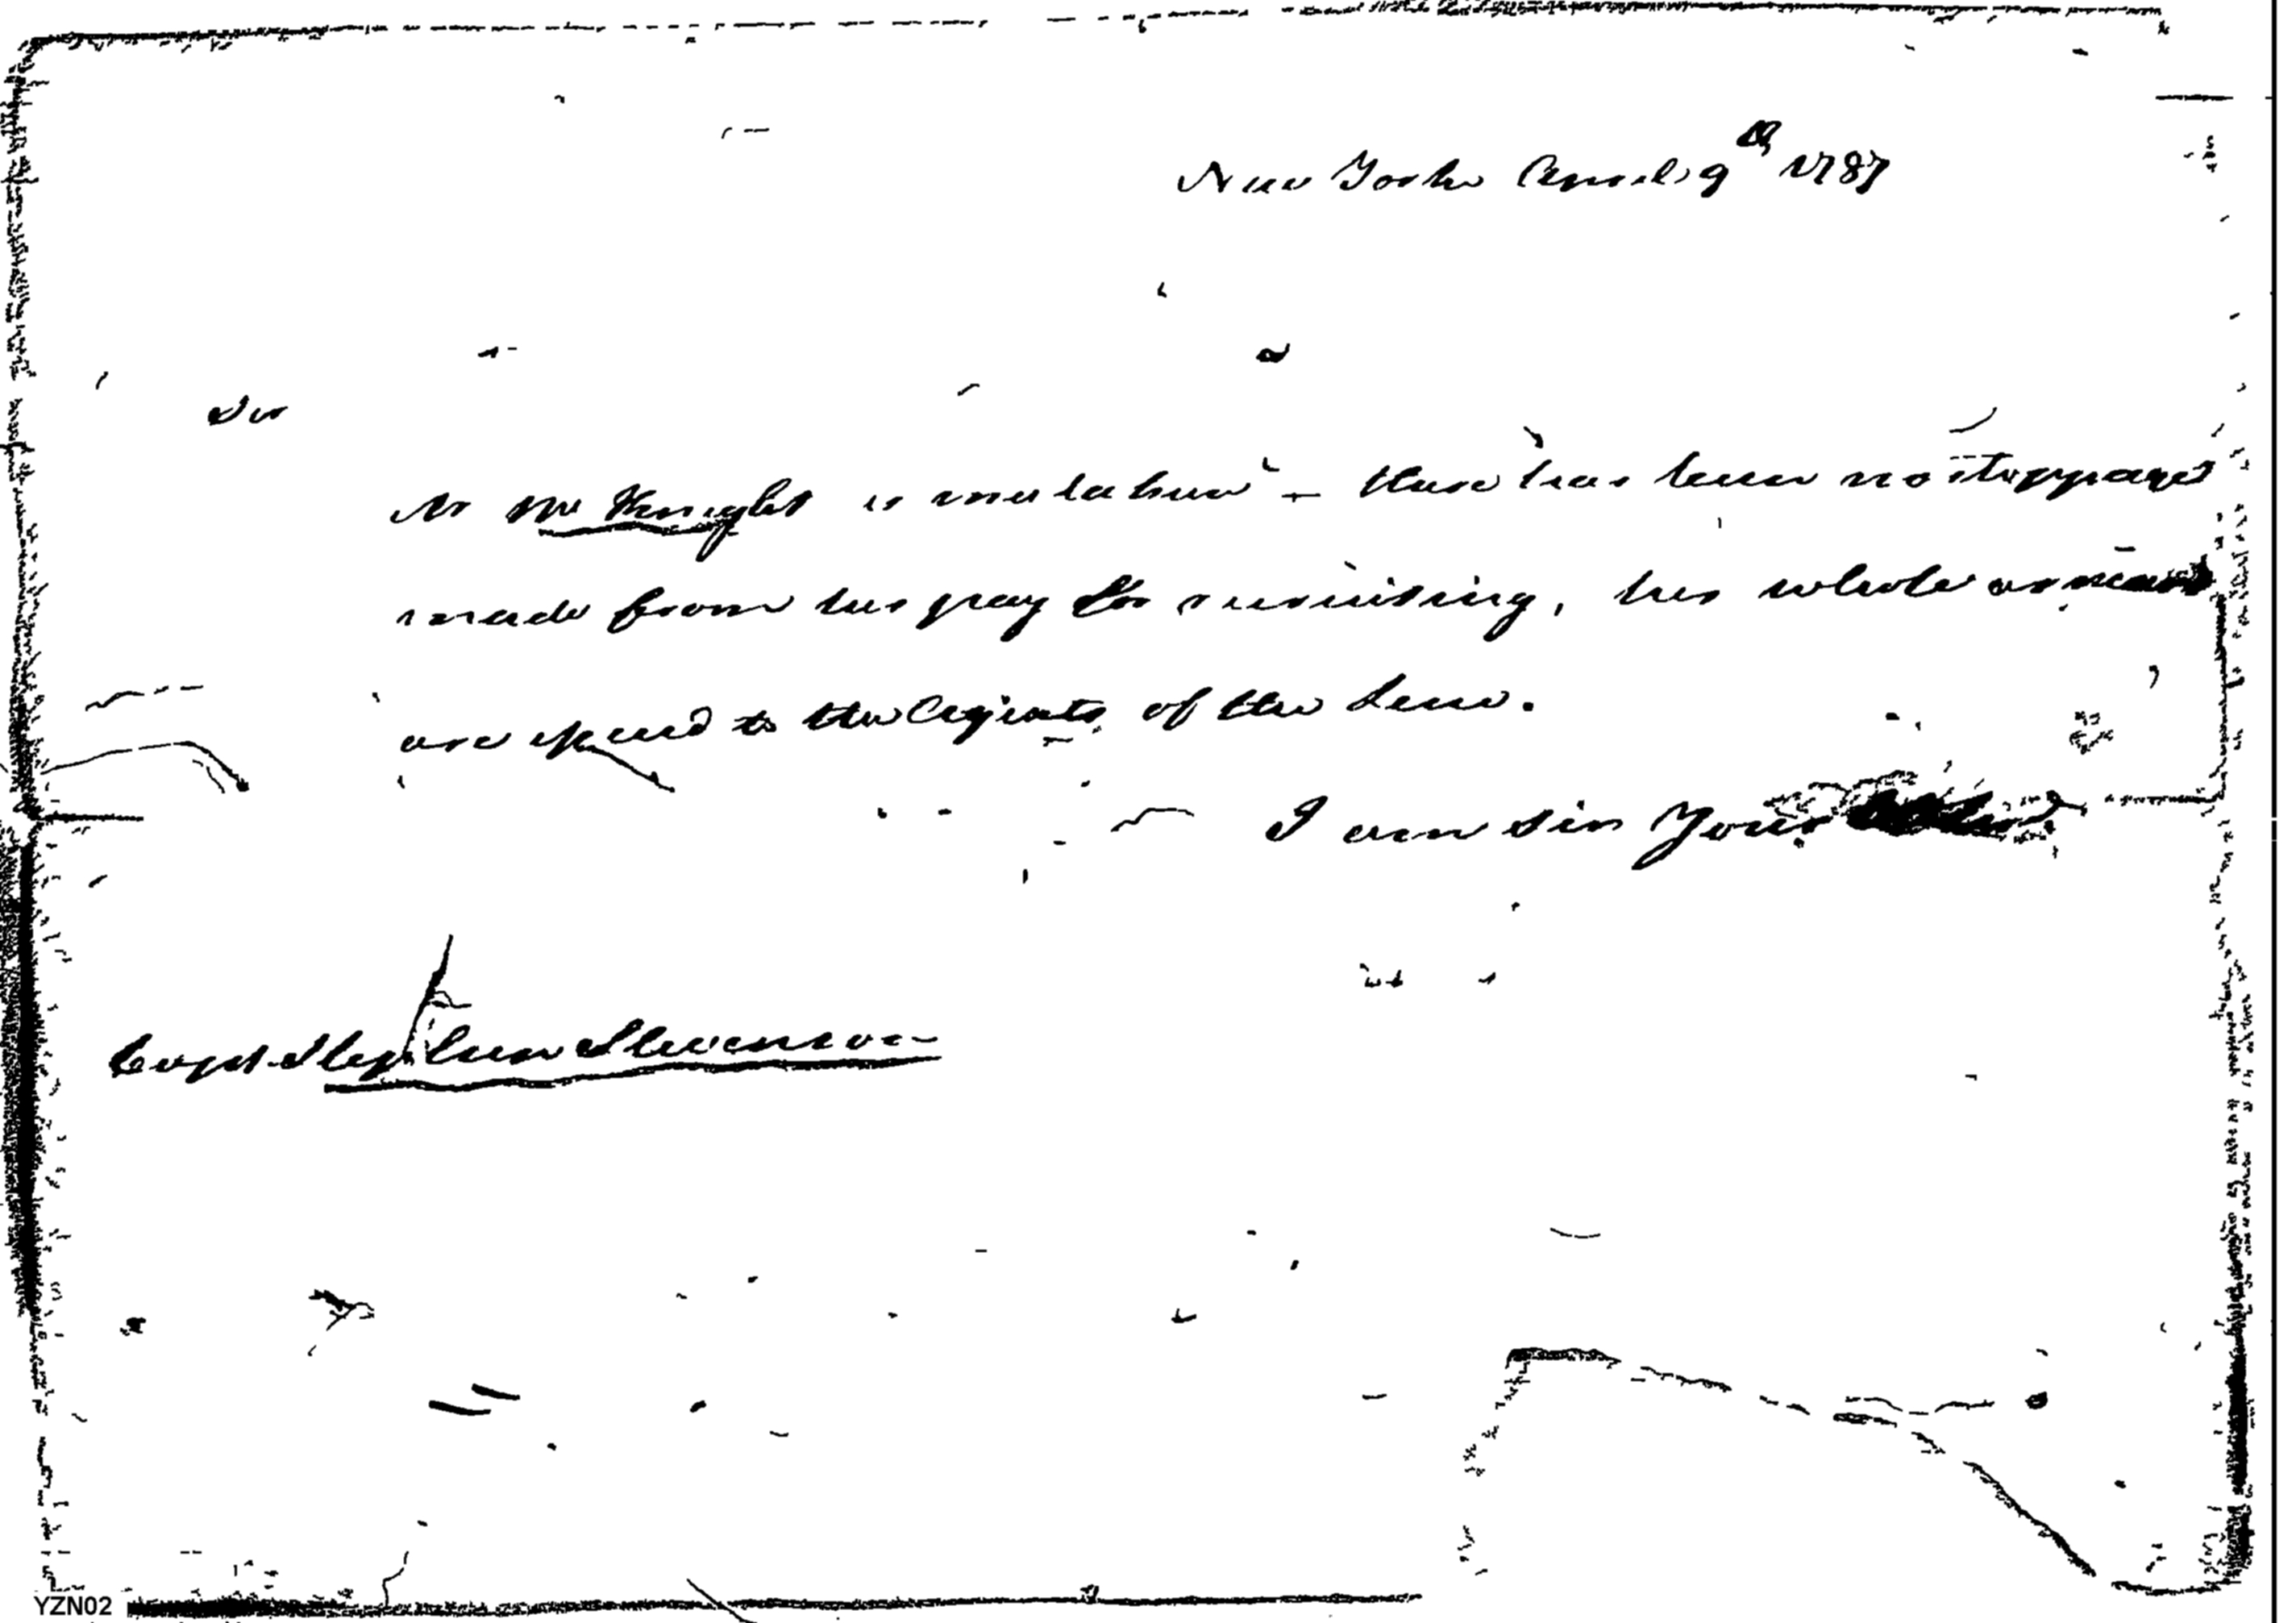 New York April 9th 1787
Sir
Mr McKnight is mistaken - there has been no stoppages
made from his pay for recruiting, his whole arrears
are issued to the Agents of the Line.
I am sir Your
Capt Stephen Stevenson
YZN02